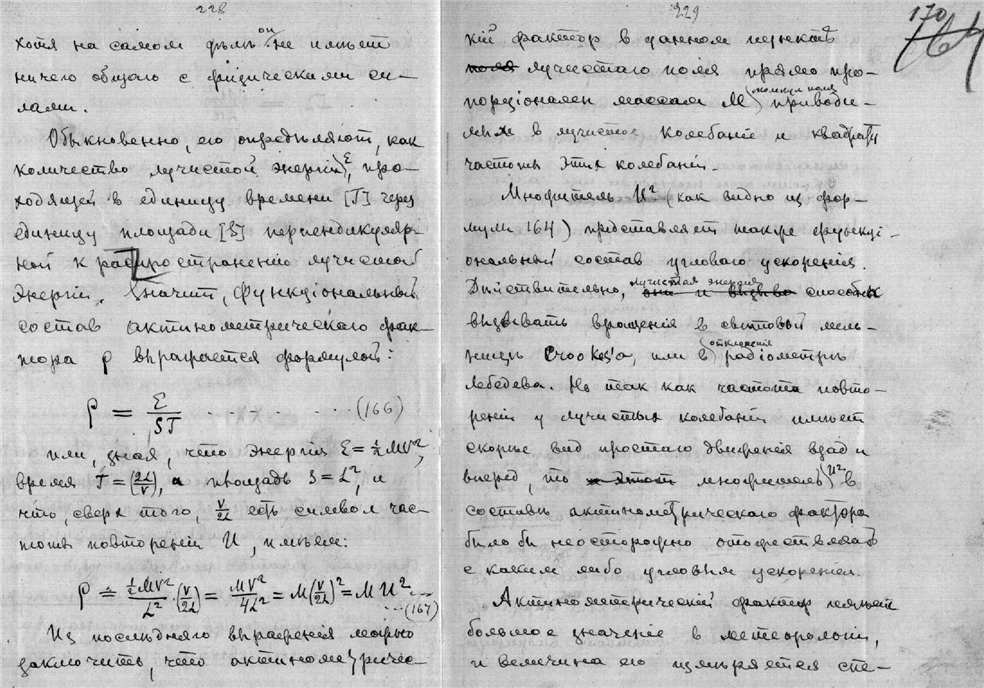 228
хотя на самом дѣлѣ он не имѣет
ничего общаго с физическими си-
лами.
Обыкновенно, его опредѣляют, как
количество лучистой энергіи, Σ про-
ходящей в единицу времени [T] через
единицу площади [S] перпендикуляр-
ной к распространенію лучистой
энергіи. Значит, функціональный
состав актинометрическаго фак-
тора ρ выражается формулой:
ρ = Σ/ST . . . . . . . (166)
или, зная, что энергія Σ = ½MV²,
время T = (2L/V), а площадь S = L², и
что, сверх того, V/2L есть символ час-
тоты повтореній И, имѣем:
ρ = ½MV²/L² · (V/2L) = MV²/4L² = M(V/2L)² = M И² ... (167)
Из послѣдняго выраженія можно
заключить, что актинометричес-
229
170
164
кій фактор в данном
поля лучистаго поля прямо про-
порціонален массам M приводи-
мых в лучистое колебаніе и квадрату
частоты этих колебаній.
Множитель И² (как видно из фор-
мулы 164) представляет также функці-
ональный состав угловаго ускоренія.
Дѣйствительно, лучистая энергія способна
вызывать вращенія в свѣтовой мель-
ницѣ Crookes'а, или отклоненія в радіометрѣ
Лебедева. Но так как частота повто-
реній у лучистых колебаній имѣет
скорѣе вид простаго движенія взад и
вперед, то множитель И² в
составѣ актинометрическаго фактора
было бы неосторожно отожествлять
с каким либо угловым ускореніем.
Актинометрическій фактор имѣет
большое значеніе в метеорологіи,
и величина его измѣряется спе-